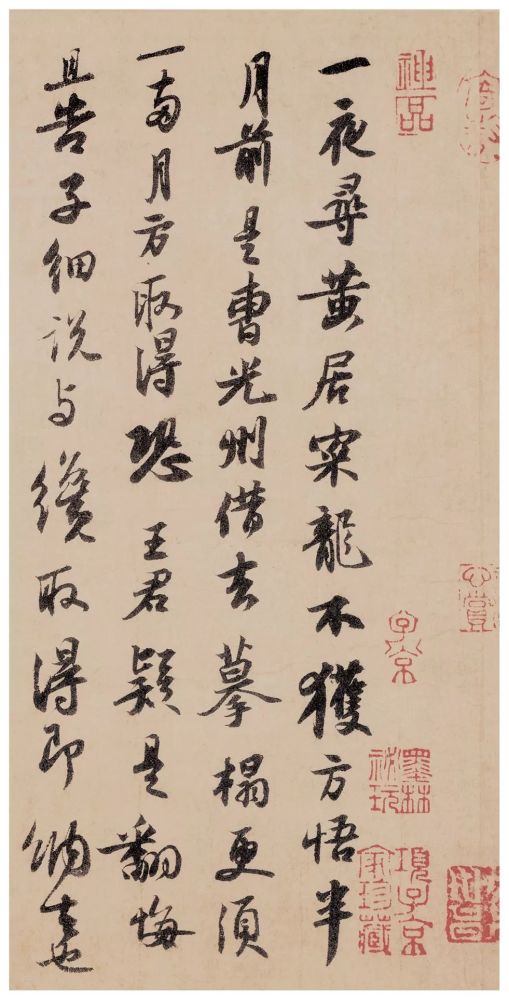 神品
子京
墨林祕玩
項子京家珍藏
一夜尋黄居寀龍不獲方悟半
月前是曹光州借去摹榻更須
一兩月方取得恐王君疑是翻悔
且告子細說与纔取得即納去也